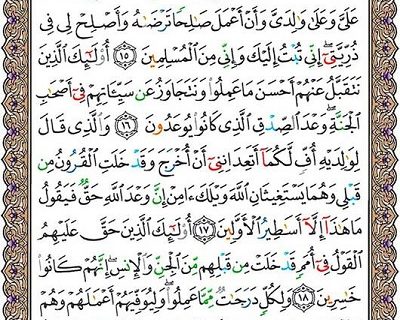 عَلَىَّ وَعَلَىٰ وَٰلِدَىَّ وَأَنْ أَعْمَلَ صَٰلِحًا تَرْضَىٰهُ وَأَصْلِحْ لِى فِى
ذُرِّيَّتِىٓ ۖ إِنِّى تُبْتُ إِلَيْكَ وَإِنِّى مِنَ ٱلْمُسْلِمِينَ ١٥ أُو۟لَٰٓئِكَ ٱلَّذِينَ
نَتَقَبَّلُ عَنْهُمْ أَحْسَنَ مَا عَمِلُوا۟ وَنَتَجَاوَزُ عَن سَيِّـَٔاتِهِمْ فِىٓ أَصْحَٰبِ
ٱلْجَنَّةِ ۖ وَعْدَ ٱلصِّدْقِ ٱلَّذِى كَانُوا۟ يُوعَدُونَ ١٦ وَٱلَّذِى قَالَ
لِوَٰلِدَيْهِ أُفٍّ لَّكُمَآ أَتَعِدَانِنِىٓ أَنْ أُخْرَجَ وَقَدْ خَلَتِ ٱلْقُرُونُ مِن
قَبْلِى وَهُمَا يَسْتَغِيثَانِ ٱللَّهَ وَيْلَكَ ءَامِنْ إِنَّ وَعْدَ ٱللَّهِ حَقٌّ فَيَقُولُ
مَا هَٰذَآ إِلَّآ أَسَٰطِيرُ ٱلْأَوَّلِينَ ١٧ أُو۟لَٰٓئِكَ ٱلَّذِينَ حَقَّ عَلَيْهِمُ
ٱلْقَوْلُ فِىٓ أُمَمٍ قَدْ خَلَتْ مِن قَبْلِهِم مِّنَ ٱلْجِنِّ وَٱلْإِنسِ ۖ إِنَّهُمْ كَانُوا۟
خَٰسِرِينَ ١٨ وَلِكُلٍّ دَرَجَٰتٌ مِّمَّا عَمِلُوا۟ ۖ وَلِيُوَفِّيَهُمْ أَعْمَٰلَهُمْ وَهُمْ